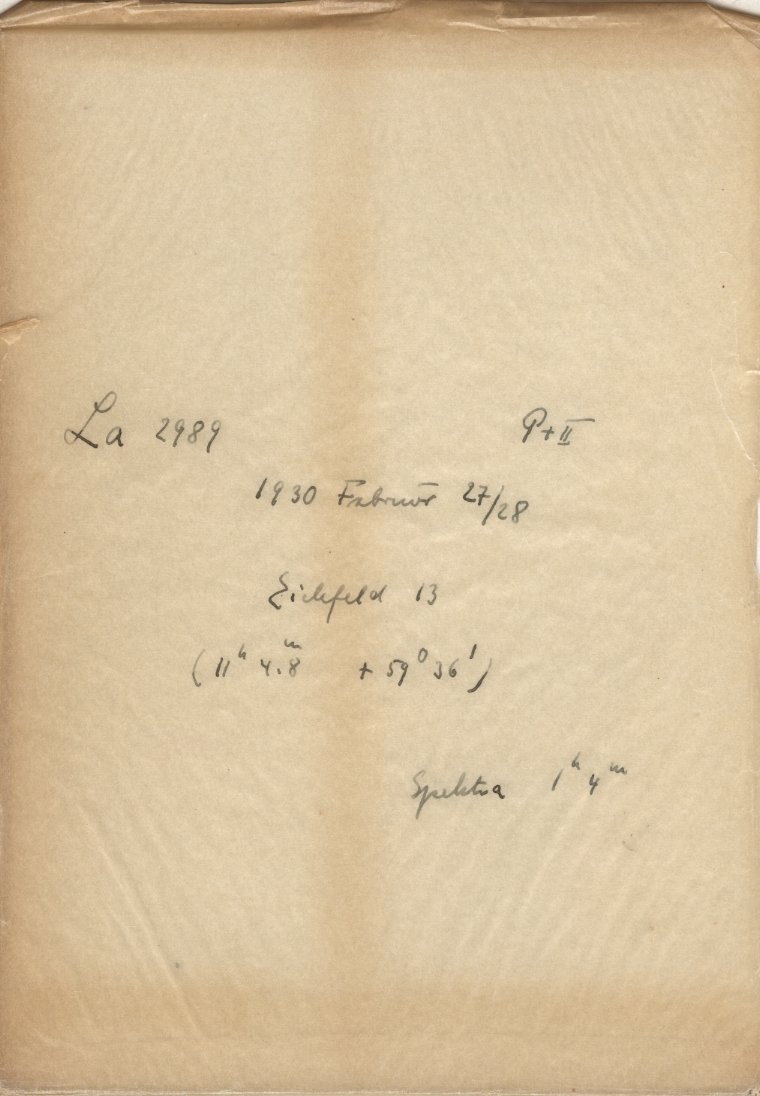 La 2989 P+II
1930 Februar 27/28
Eichfeld 13
(11ʰ 4.8ᵐ + 59⁰ 36')
Spektra 1ʰ 4ᵐ